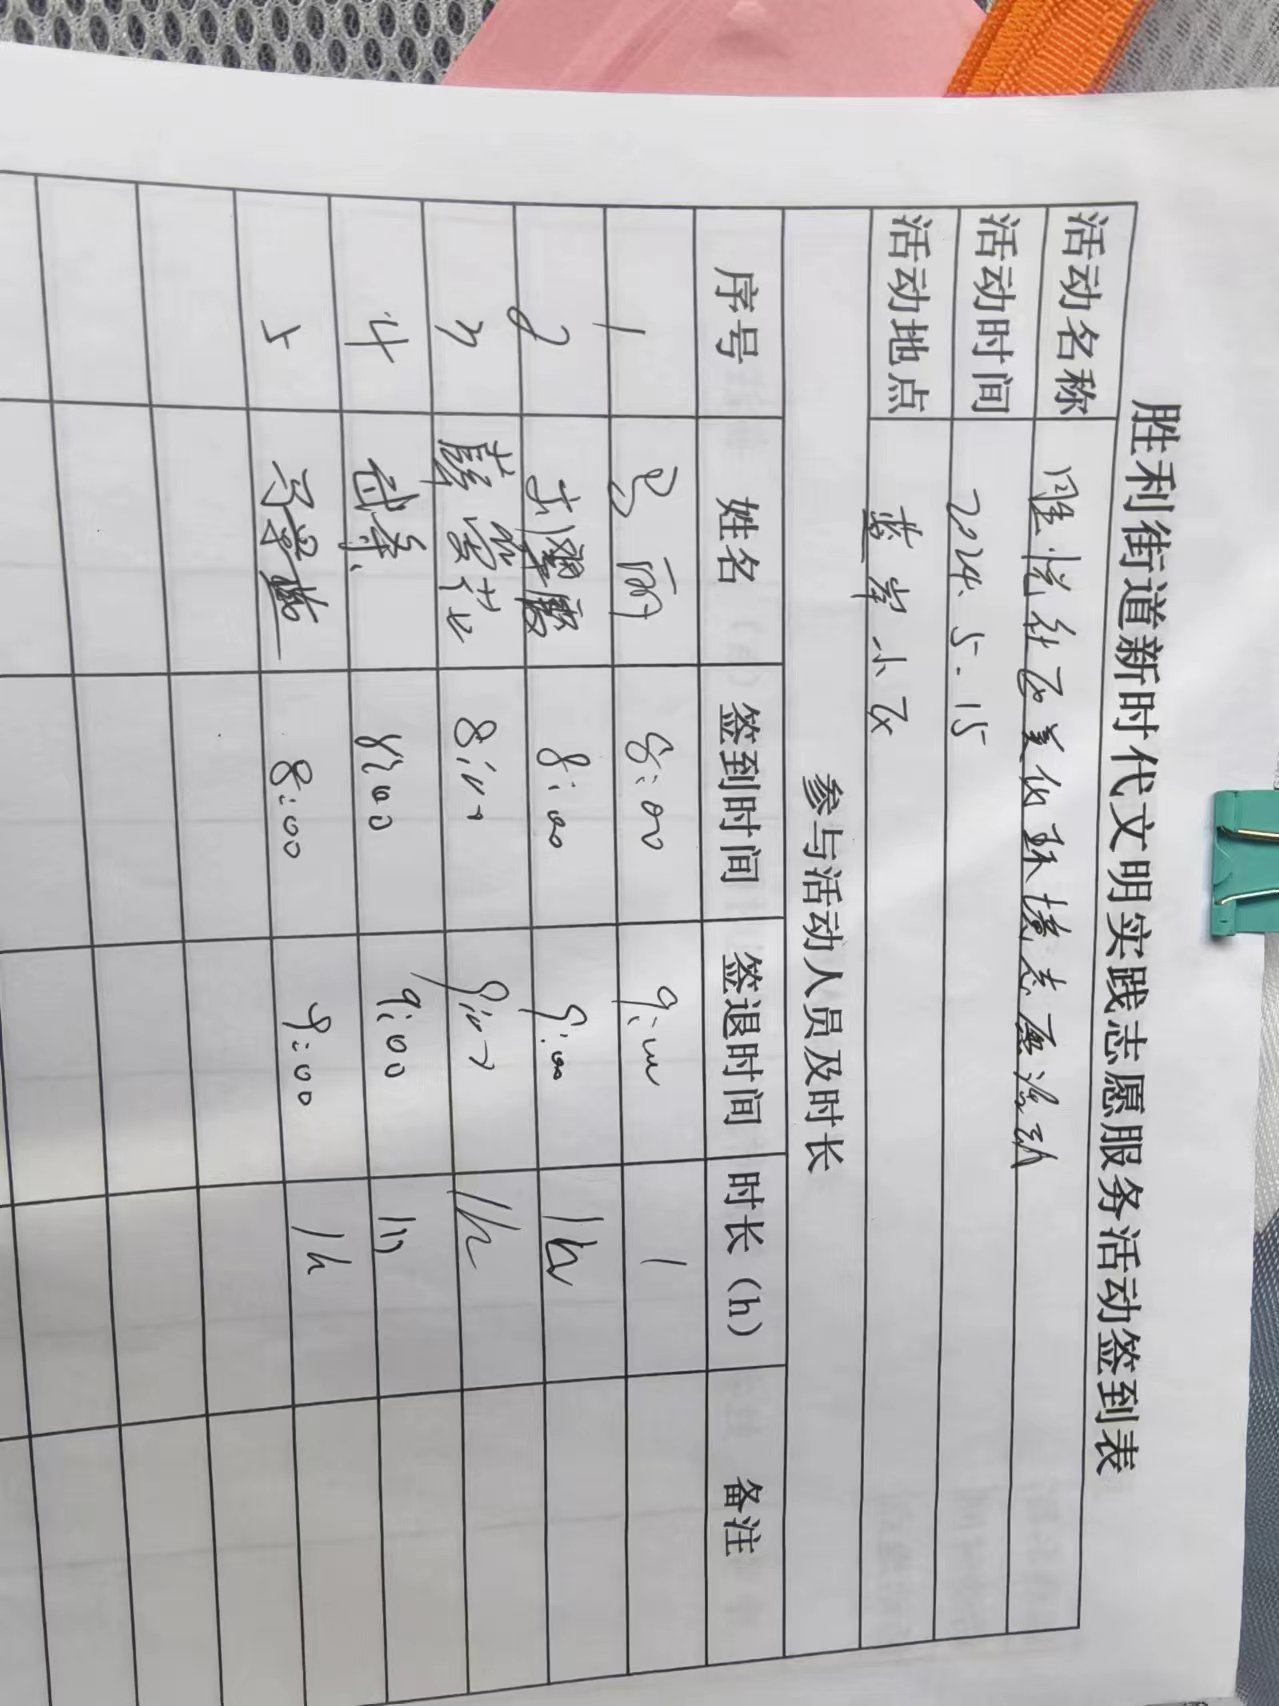 胜利街道新时代文明实践志愿服务活动签到表
活动名称 胜悦社区美化环境志愿活动
活动时间 2024.5.15
活动地点 蓝岸小区
参与活动人员及时长
序号 姓名 签到时间 签退时间 时长（h） 备注
1 马丽 8:00 9:00 1
2 8:00 9:00 1h
3 薛雪花 8:00 9:00 1h
4 8:00 9:00 1h
5 8:00 9:00 1h